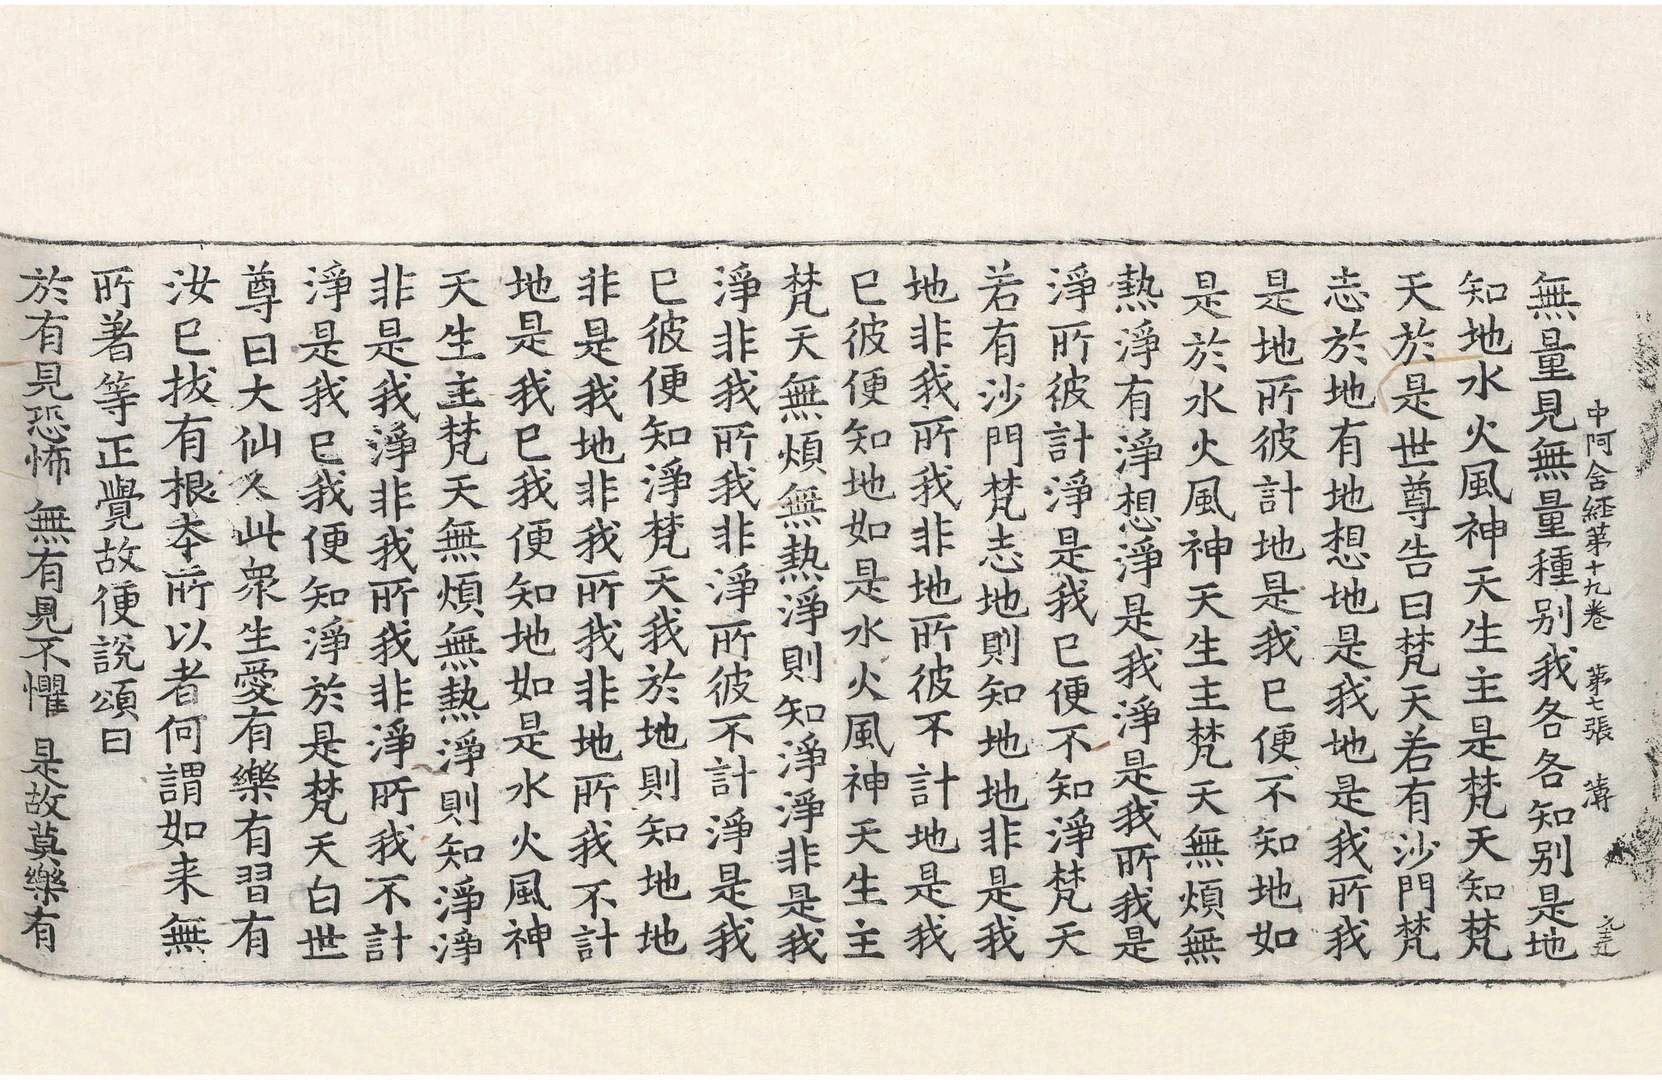 中阿含經第十九卷 第七張 薄
無量見無量種別我各各知別是地
知地水火風神天生主是梵天知梵
天於是世尊告曰梵天若有沙門梵
志於地有地想地是我地是我所我
是地所彼計地是我已便不知地如
是於水火風神天生主梵天無煩無
熱淨有淨想淨是我淨是我所我是
淨所彼計淨是我已便不知淨梵天
若有沙門梵志地則知地地非是我
地非我所我非地所彼不計地是我
已彼便知地如是水火風神天生主
梵天無煩無熱淨則知淨淨非是我
淨非我所我非淨所彼不計淨是我
已彼便知淨梵天我於地則知地地
非是我地非我所我非地所我不計
地是我已我便知地如是水火風神
天生主梵天無煩無熱淨則知淨淨
非是我淨非我所我非淨所我不計
淨是我已我便知淨於是梵天白世
尊曰大仙人此衆生愛有樂有習有
汝已拔有根本所以者何謂如来無
所著等正覺故便說頌曰
於有見恐怖 無有見不懼 是故莫樂有